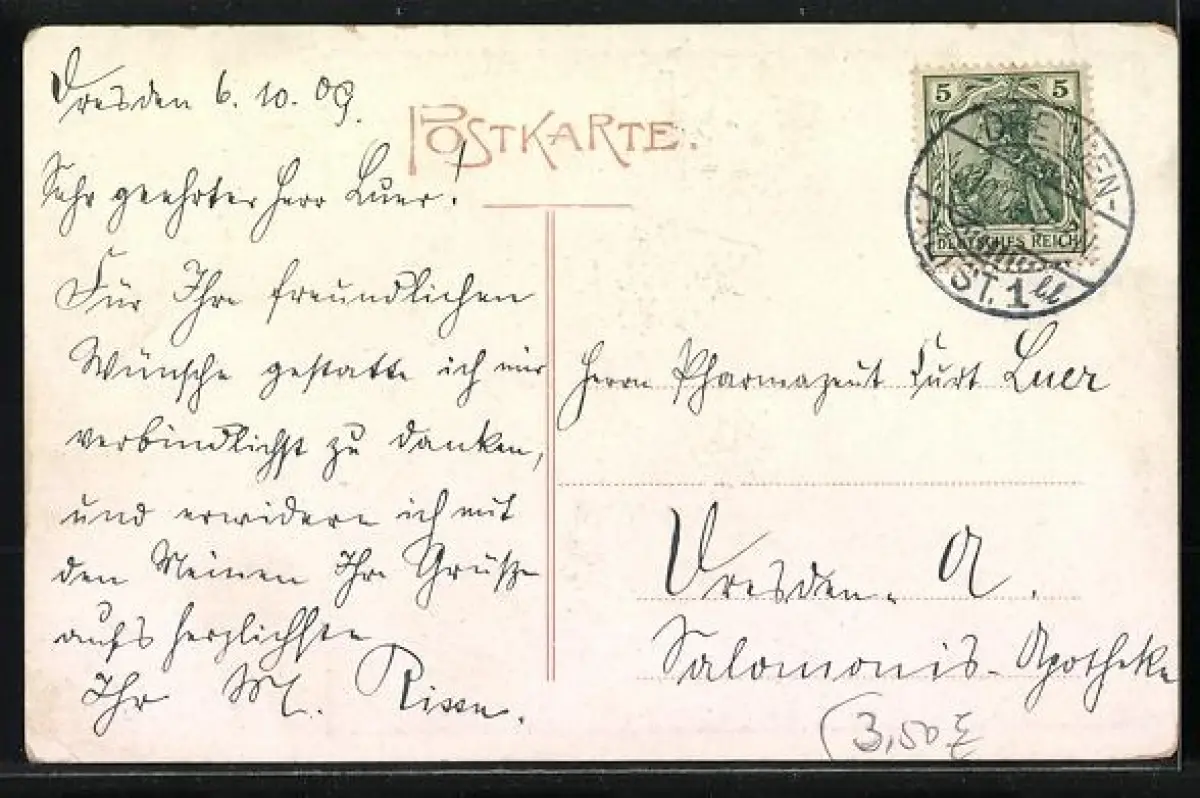 Dresden 6. 10. 09.
POSTKARTE.
Sehr geehrter Herr Luer!
Für Ihre freundlichen
Wünsche gestatte ich mir
verbindlichst zu danken,
und erwidere ich mit
den Meinen Ihre Grüße
aufs herzlichste
Ihr M.
5 5
DEUTSCHES REICH
DRESDEN-
ST. 1
Herrn Pharmazeut Kurt Luer
Dresden. A.
Salomonis-Apotheke
3,50